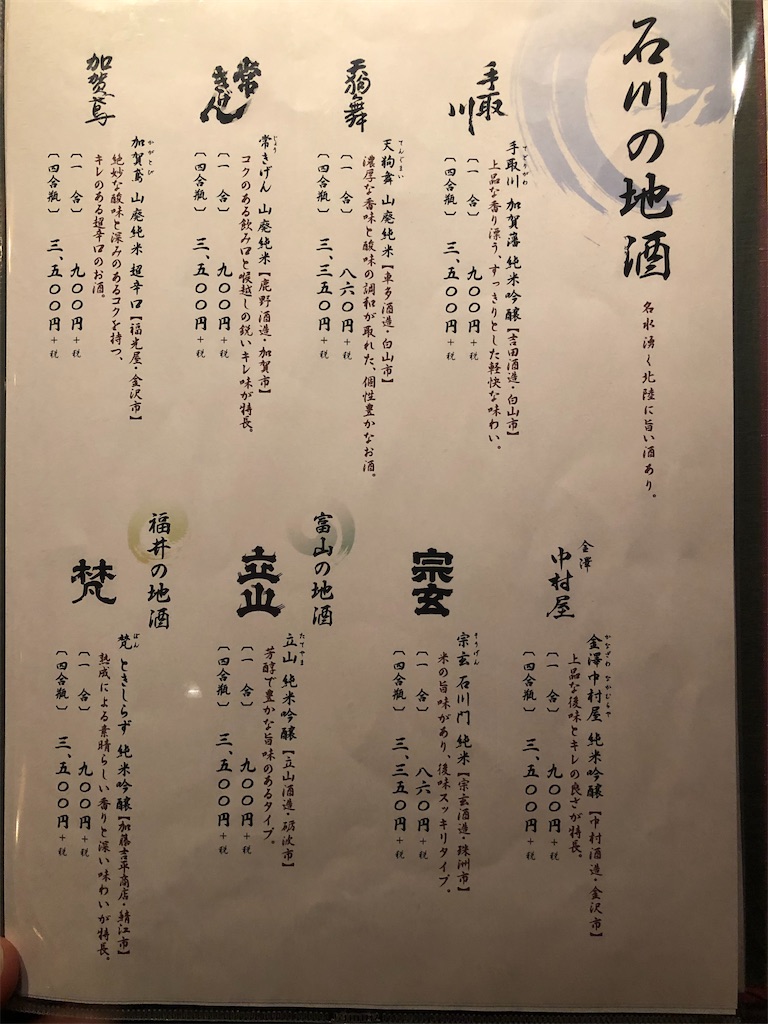 石川の地酒
名水湧く北陸に旨い酒あり。
手取川
てどりがわ
手取川 加賀藩 純米吟醸【吉田酒造・白山市】
上品な香り漂う、すっきりとした軽快な味わい。
〔一 合〕 九〇〇円+税
〔四合瓶〕 三、五〇〇円+税
天狗舞
てんぐまい
天狗舞 山廃純米【車多酒造・白山市】
濃厚な香味と酸味の調和が取れた、個性豊かなお酒。
〔一 合〕 八六〇円+税
〔四合瓶〕 三、三五〇円+税
常きげん
じょう
常きげん 山廃純米【鹿野酒造・加賀市】
コクのある飲み口と喉越しの鋭いキレ味が特長。
〔一 合〕 九〇〇円+税
〔四合瓶〕 三、五〇〇円+税
加賀鳶
かがとび
加賀鳶 山廃純米 超辛口【福光屋・金沢市】
絶妙な酸味と深みのあるコクを持つ、
キレのある超辛口のお酒。
〔一 合〕 九〇〇円+税
〔四合瓶〕 三、五〇〇円+税
金澤
中村屋
かなざわ なかむらや
金澤中村屋 純米吟醸【中村酒造・金沢市】
上品な後味とキレの良さが特長。
〔一 合〕 九〇〇円+税
〔四合瓶〕 三、五〇〇円+税
宗玄
そうげん
宗玄 石川門 純米【宗玄酒造・珠洲市】
米の旨味があり、後味スッキリタイプ。
〔一 合〕 八六〇円+税
〔四合瓶〕 三、三五〇円+税
富山の地酒
立山
たてやま
立山 純米吟醸【立山酒造・砺波市】
芳醇で豊かな旨味のあるタイプ。
〔一 合〕 九〇〇円+税
〔四合瓶〕 三、五〇〇円+税
福井の地酒
梵
ぼん
梵 ときしらず 純米吟醸【加藤吉平商店・鯖江市】
熟成による素晴らしい香りと深い味わいが特長。
〔一 合〕 九〇〇円+税
〔四合瓶〕 三、五〇〇円+税